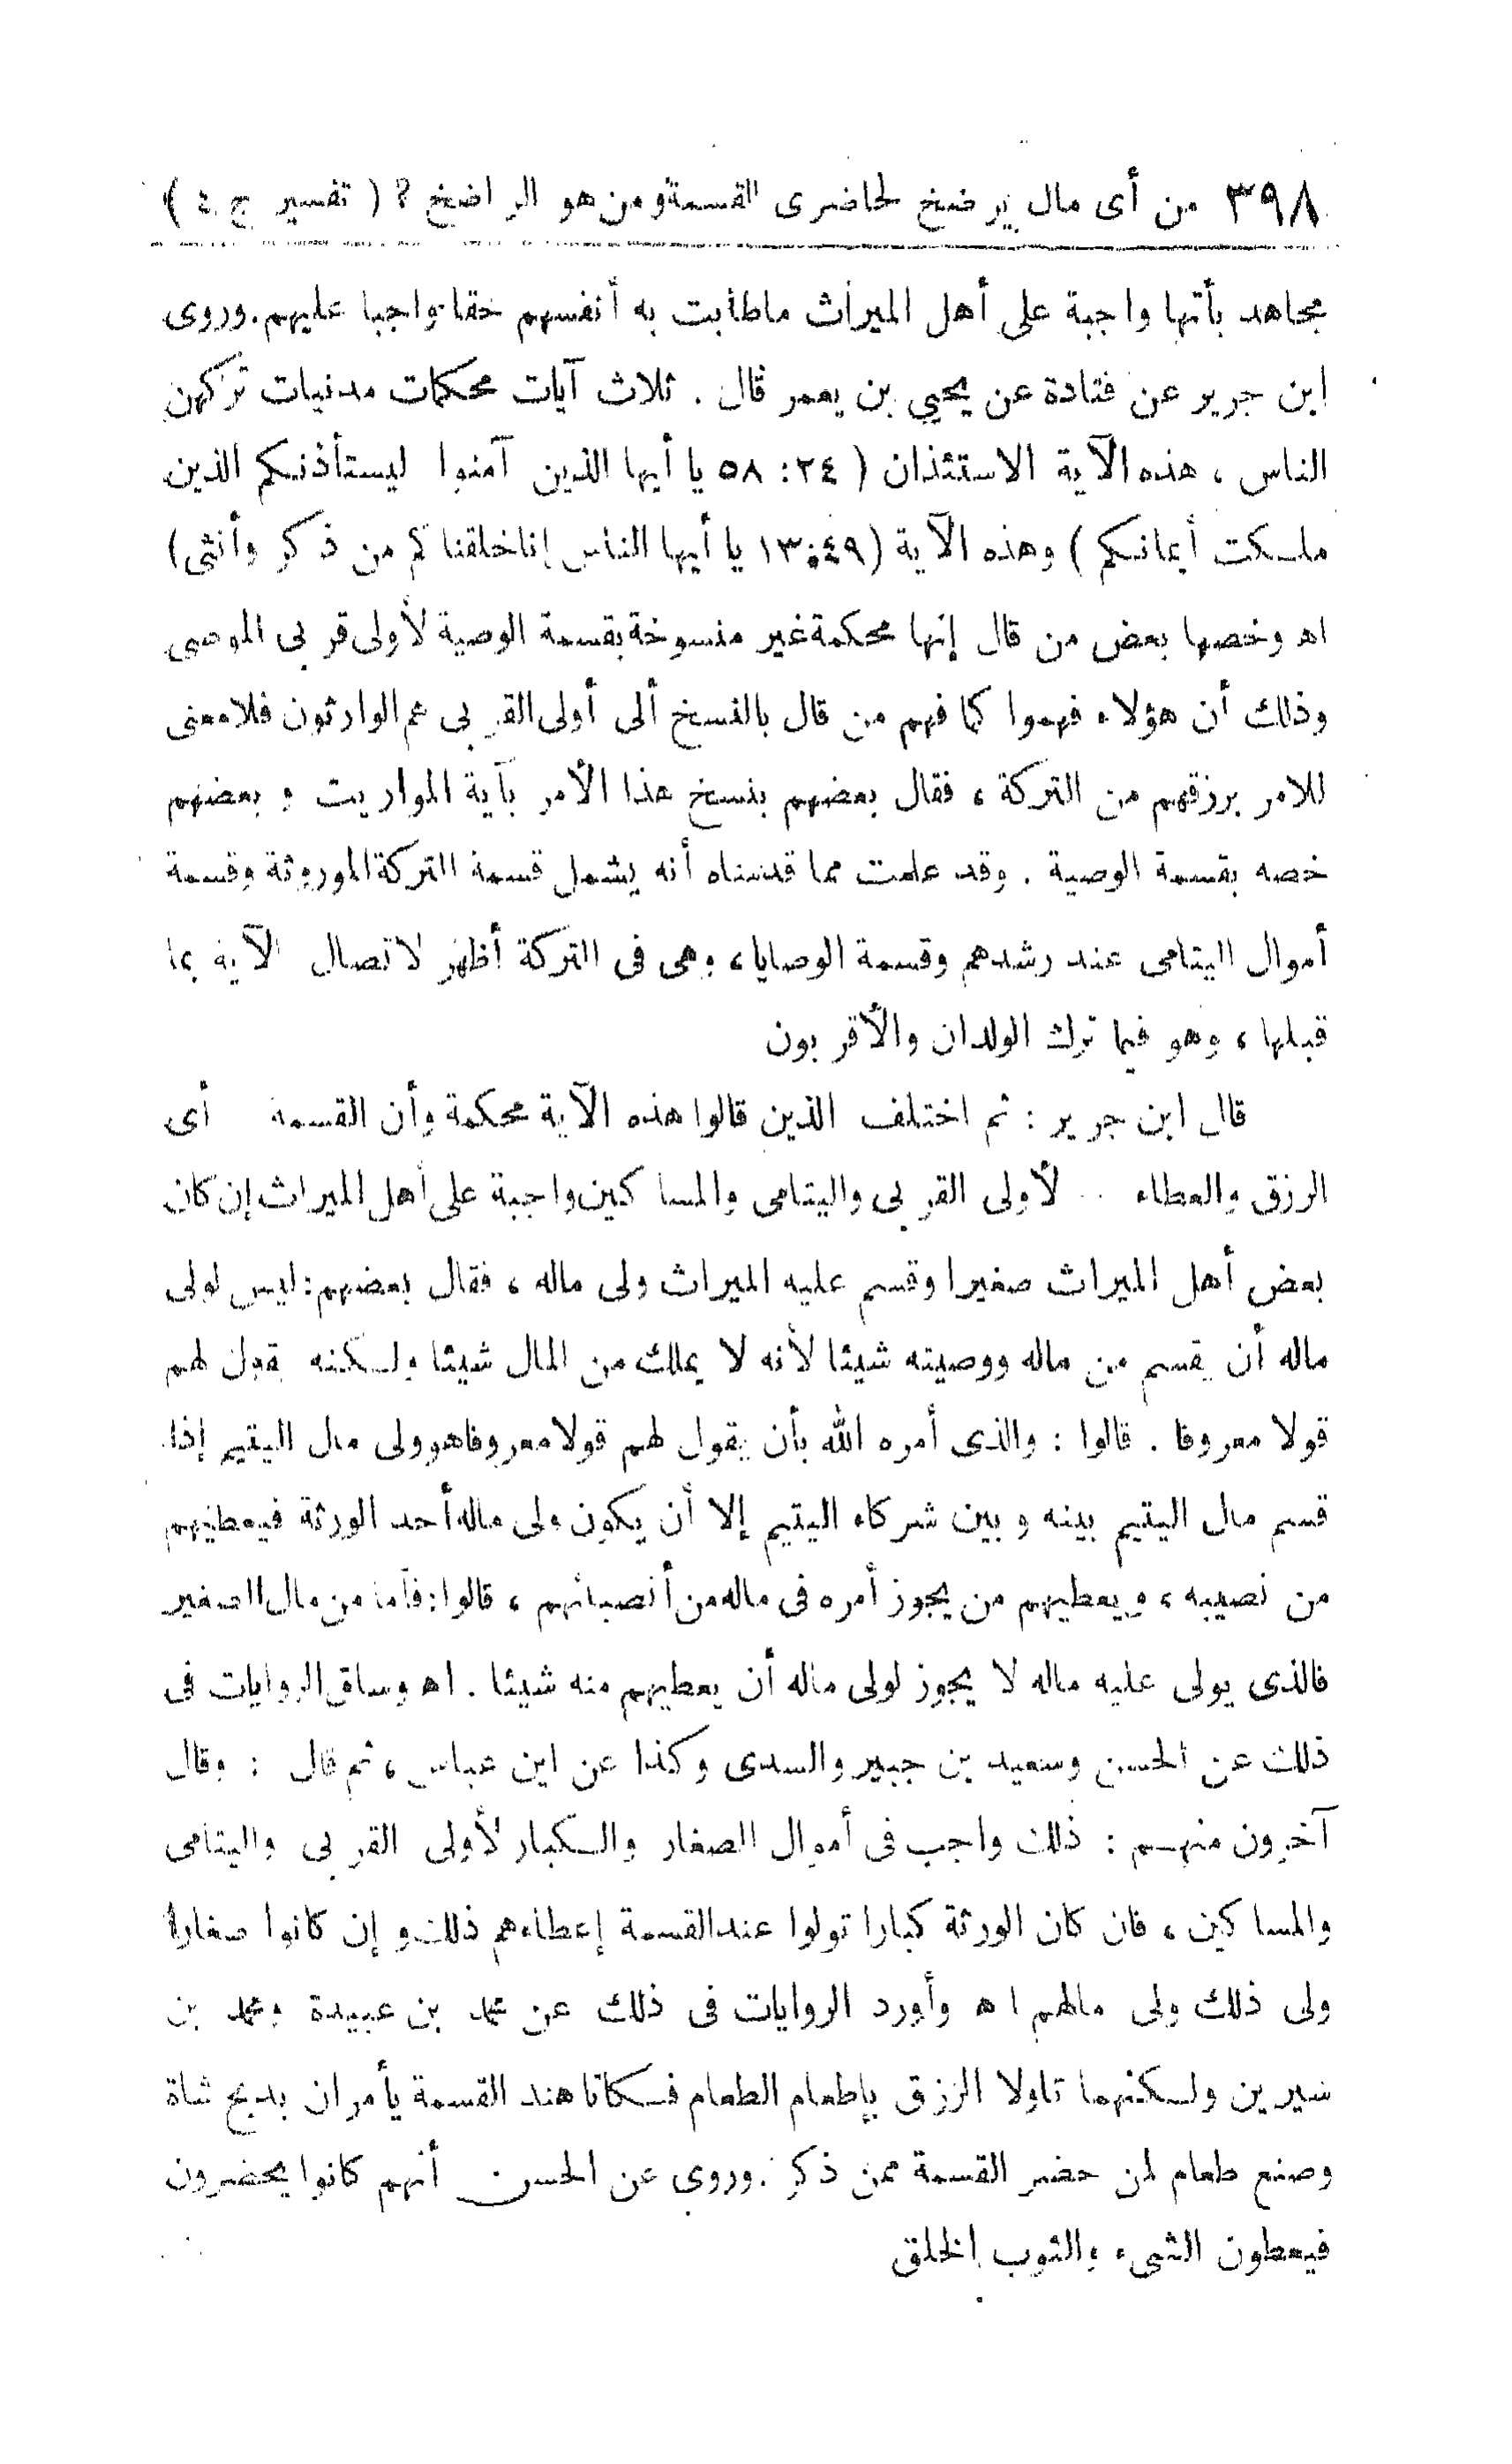 ٣٩٨ من أى مال يرضخ لحاضرى القسمة ومن هو الراضخ ؟ ( تفسير ج ٤ )
مجاهد بأنها واجبة على أهل الميراث ماطابت به أنفسهم حقا واجبا عليهم. وروى
ابن جرير عن قتادة عن يحيي بن يعمر قال . ثلاث آيات محكمات مدنيات تركهن
الناس ، هذه الآية الاستئذان ( ٢٤ : ٥٨ يا أيها الذين آمنوا ليستأذنكم الذين
ملكت أيمانكم ) وهذه الآية (٤٩:١٣ يا أيها الناس إنا خلقناكم من ذكر وأنثى)
اه وخصها بعض من قال إنها محكمة غير منسوخة بقسمة الوصية لأولى قربى الموصى
وذلك أن هؤلاء فهموا كما فهم من قال بالنسخ ألى أولى القربى هم الوارثون فلا معنى
للامر برزقهم من التركة ، فقال بعضهم بنسخ هذا الأمر بآية المواريث و بعضهم
خصه بقسمة الوصية . وقد علمت مما قدمناه أنه يشمل قسمة التركة الموروثة وقسمة
أموال اليتامى عند رشدهم وقسمة الوصايا ، وهى فى التركة أظهر لاتصال الآية بما
قبلها ، وهو فيما ترك الولدان والأقربون
قال ابن جرير : ثم اختلف الذين قالوا هذه الآية محكمة وأن القسمة أى
الرزق والعطاء .. لأولى القربى واليتامى والمساكين واجبة على أهل الميراث إن كان
بعض أهل الميراث صغيرا وقسم عليه الميراث ولى ماله ، فقال بعضهم: ليس لولى
ماله أن يقسم من ماله ووصيته شيئا لأنه لا يملك من المال شيئا ولكنه يقول لهم
قولا معروفا . قالوا : والذى أمره الله بأن يقول لهم قولا معروفا هو ولى مال اليتيم إذا
قسم مال اليتيم بينه و بين شركاء اليتيم إلا أن يكون ولى ماله أحد الورثة فيعطيهم
من نصيبه ، ويعطيهم من يجوز أمره فى ماله من أنصبائهم ، قالوا: فأما من مال الصغير
فالذى يولى عليه ماله لا يجوز لولى ماله أن يعطيهم منه شيئا . اه وساق الروايات فى
ذلك عن الحسن وسعيد بن جبير والسدى وكذا عن ابن عباس ، ثم قال : وقال
آخرون منهم : ذلك واجب فى أموال الصغار والكبار لأولى القربى واليتامى
والمساكين ، فان كان الورثة كبارا تولوا عند القسمة إعطاءهم ذلك و إن كانوا صغارا
ولى ذلك ولى مالهم اه وأورد الروايات فى ذلك عن محمد بن عبيدة ومحمد بن
سيرين ولكنهما تاولا الرزق بإطعام الطعام فكانا هند القسمة يأمران بذبح شاة
وصنع طعام لمن حضر القسمة ممن ذكر . وروى عن الحسن أنهم كانوا يحضرون
فيعطون الشىء والثوب الخلق